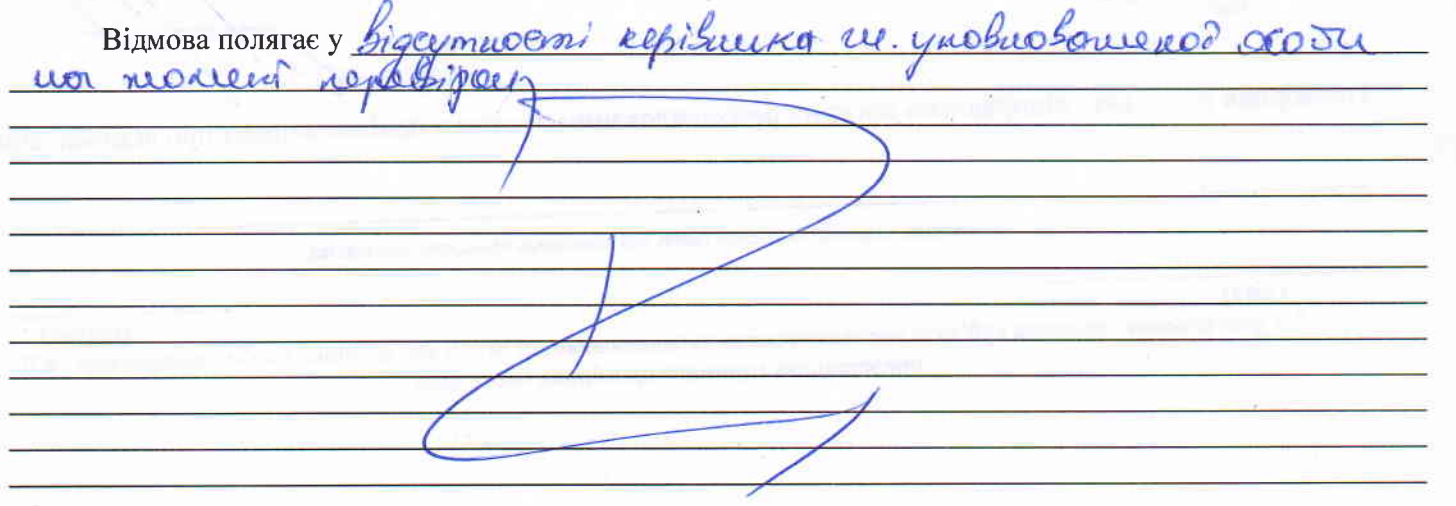 Відмова полягає у відсутності керівника чи. уповноваженої особи
на момент перевірки